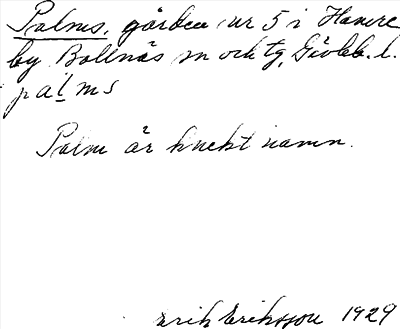 Palms, gården nr 5 i Hamre
by Bollnäs sn och tg, Gävleb. l.
pals ms
Palm är knektnamn.
Erik Eriksson 1929